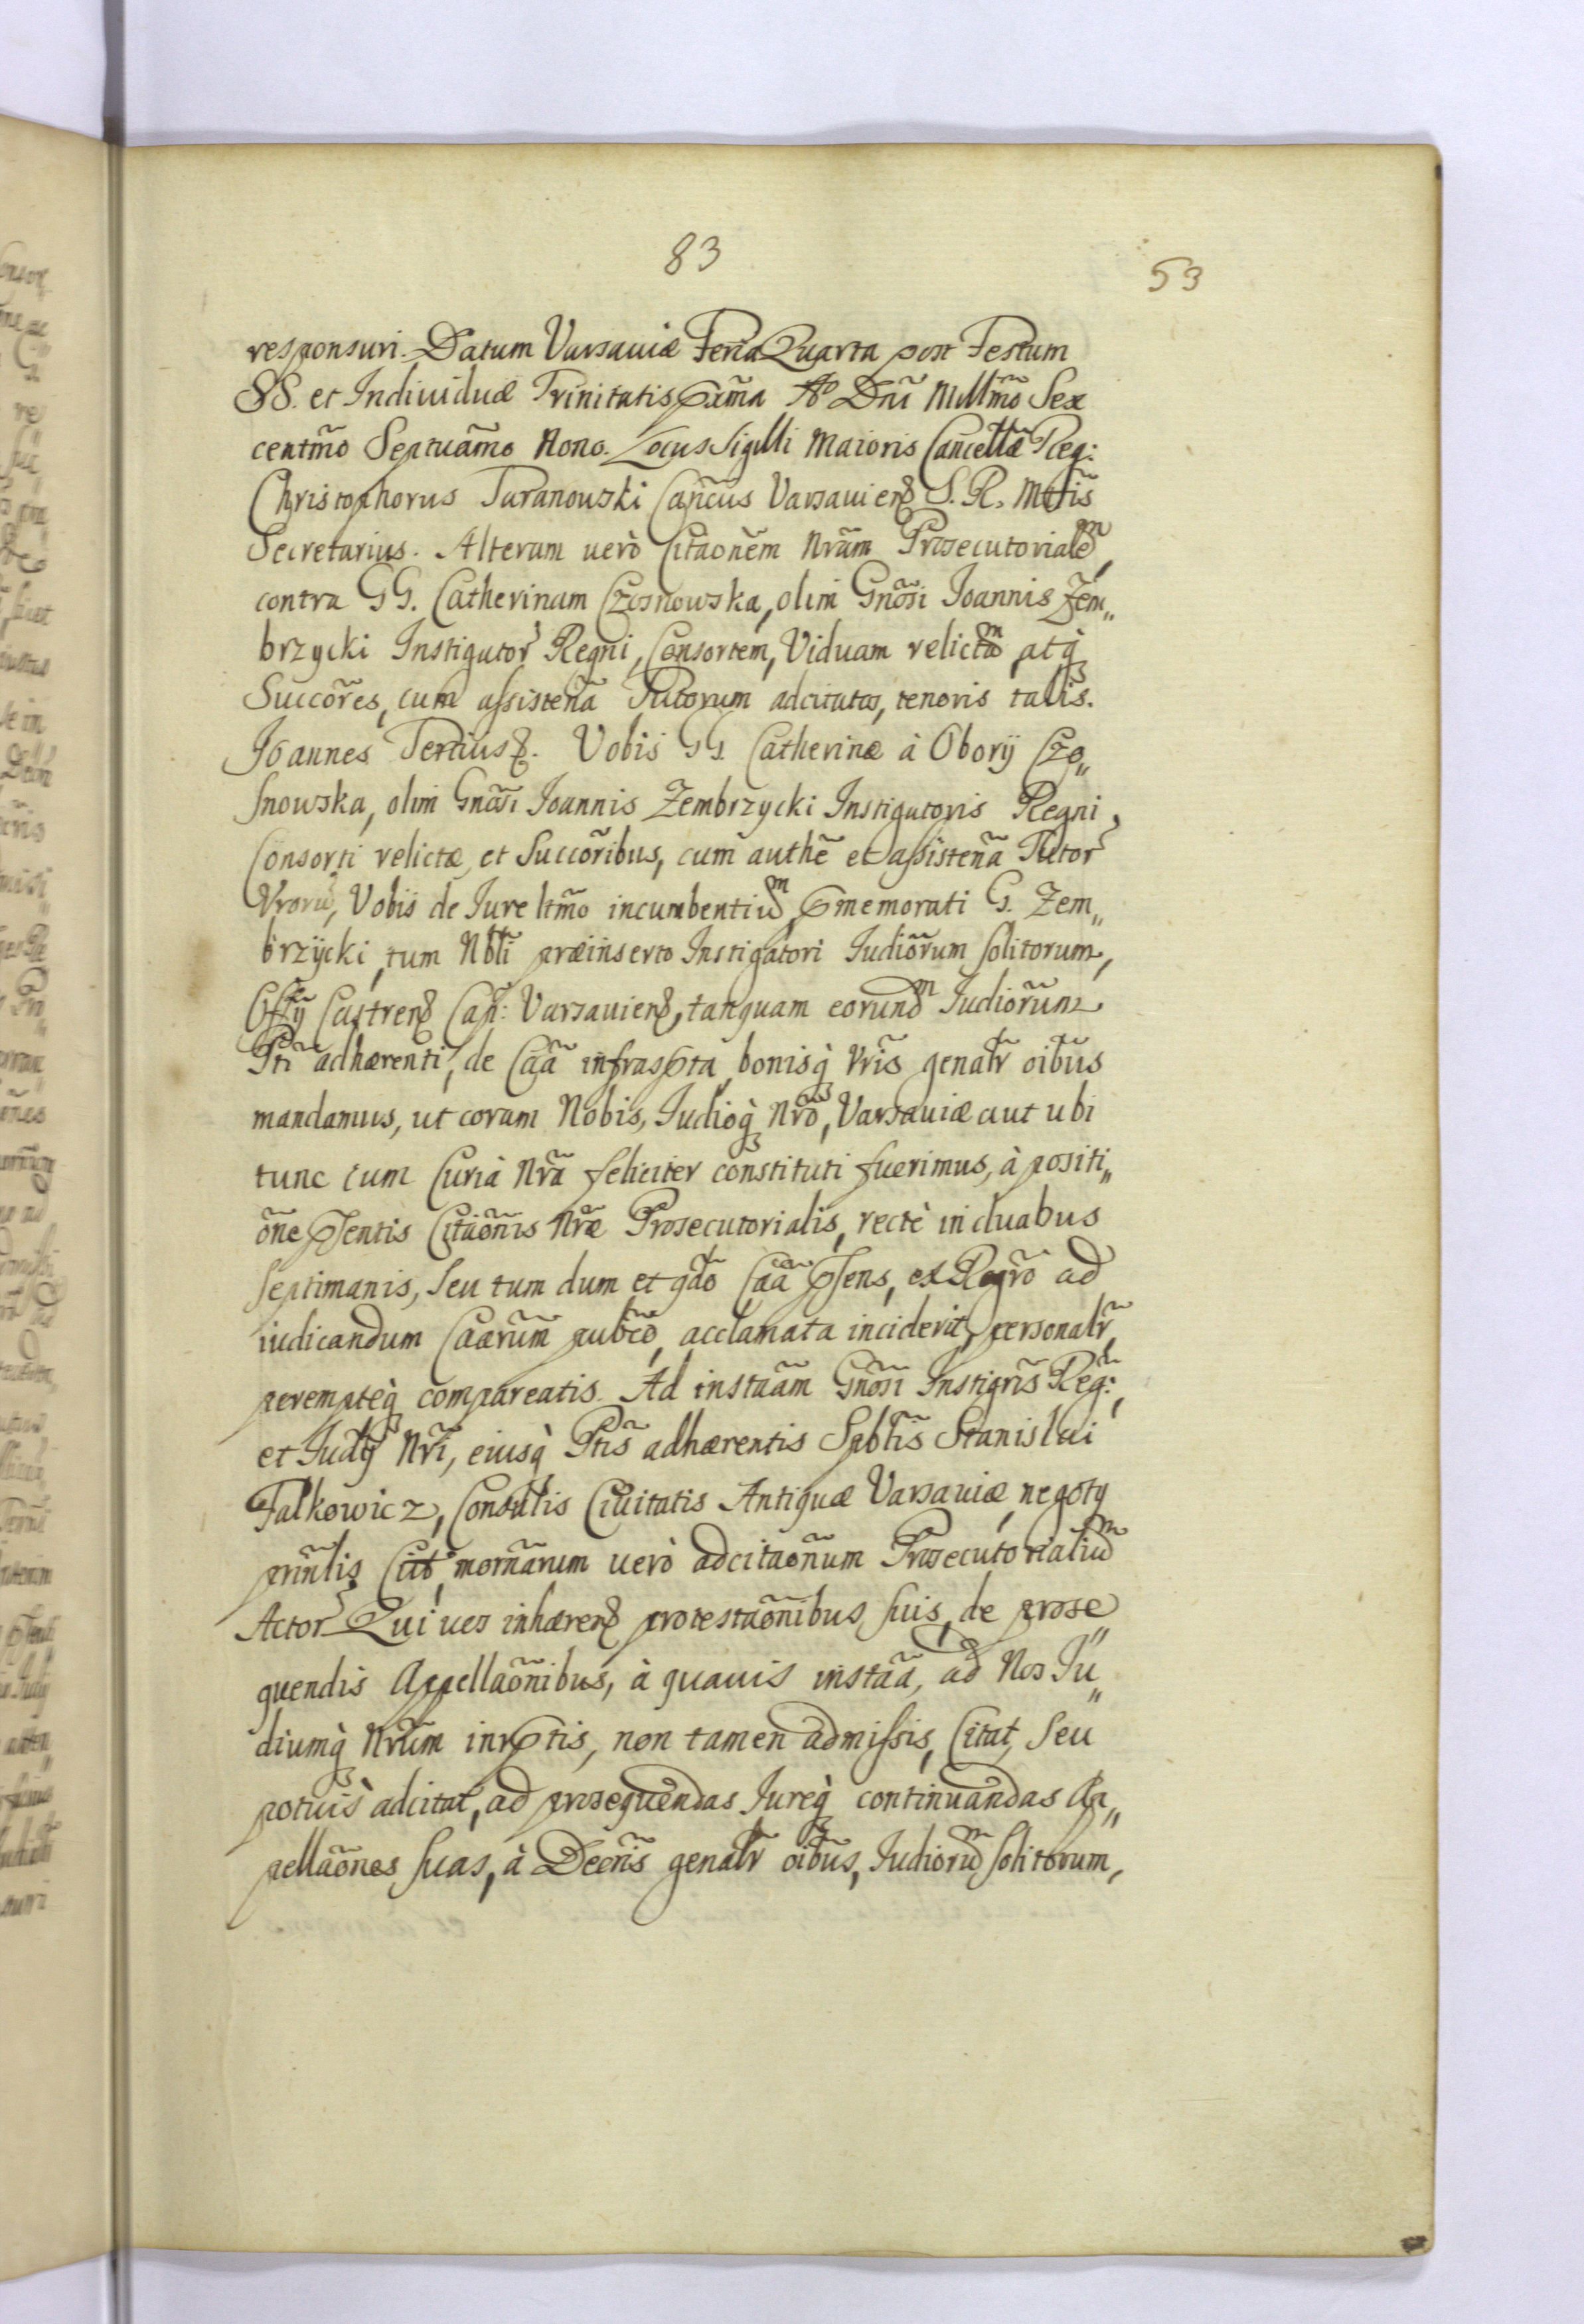 83
53
responsuri. Datum Varsauiæ Feria Quarta post Festum
SS. et Indiuiduæ Trinitatis Pxm̃a Aō Dn̄i Millm̃o Sex
centm̃o Septuãmo Nono. Locus Sigilli Maioris Cancellæ Reg:
Christophorus Taranowski Cañcus Varsauien̄ S. R. Mttis̃
Secretarius. Alteram uerò Citaoñem Nram̃ Prosecutorialem,
contra GG. Catherinam Czosnowska, olim Gnõsi Ioannis Zem„
brzycki Instigator̃ Regni, Consortem, Viduam relictam, atq̀
Succõres, cum assisteña Tutorum adcitatas, tenoris talis̃.
Ioannes Tertius &. Vobis GG. Catherinæ à Obory Czo„
snowska, olim Gnõsi Ioannis Zembrzycki Instigatoris Regni,
Consorti relictæ, et Succõribus, cum authẽ et assisteña Tutor̃
Vrorũ, Vobis de Iure ltm̃o incumbentium, Pmemorati G. Zem„
brzycki, tum Nbli̇̃ præinserto Instigatori Iudiõrum solitorum,
Offỹ Castren̄ Cap̃: Varsauien̄, tanquam eorundm Iudiõrum
Pti̇̃ adhærenti, de Cãa infrasPta, bonisq̀ Vris̃ genalr̃ oib̃us
mandamus, ut coram Nobis, Iudioq̀ Nrõ, Varsauiæ aut ubi
tunc cum Curia Nrã feliciter constituti fuerimus, à positi„
õne Psentis Citaõnis Nræ̃ Prosecutorialis, rectè in duabus
septimanis, seu tum dum et qdõ Cãa Psens, ex Regrõ ad
iudicandum Caarum̃ pubc̃o, acclamata inciderit, personalr̃,
perempteq̀ compareatis. Ad instaãm Gnõsi Instigris̃ Reg:,
et Iudỹ Nri̇̃, eiusq̀ Ptis̃ adhærentis Spblis̃ Stanislai
Falkowicz, Consulis Ciuitatis Antiquæ Varsauiæ, negoty
prinl̃is Cit, mornãrum uerò adcitaõnum Prosecutorialium
Actor̃ Qui uos inhæren̄ protestaõnibus suis, de prose„
quendis Appellaõnibus, à quauis instãa, ad Nos Iu„
diumq̀ Nrum̃ inrPtis, non tamen admissis, Citat, seu
potius adcitat, ad prosequendas Iureq̀ continuandas Ap„
pellaõnes suas, à Decris̃ genalr̃ oib̃us, Iudiorum solitorum,